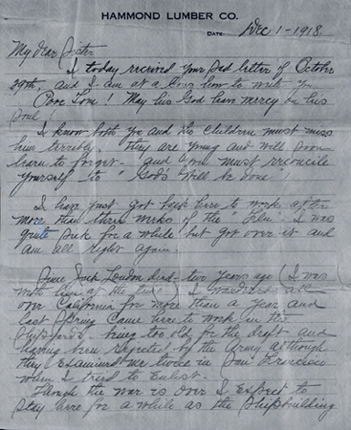 HAMMOND LUMBER CO.
DATE: Dec 1-1918.
My dear Sister
I today received your sad letter of October
29th, and I am at a loss how to write you
Poor Tom! May his God have mercy on his
soul
I know both you and the children must miss
him terribly. They are young and will soon
learn to forget. And you must reconcile
yourself to "God's will be done"
I have just got back here to work after
more than three weeks of the "Flu". I was
quite sick for a while but got over it and
am all right again.
Since Jack London died two years ago (I was
with him at the time) I wandered all
over California for more than a year and
last Spring came here to work in the
Shipyards. being too old for the draft and
having been rejected by the Army although
they examined me twice in San Francisco
when I tried to enlist.
Though the war is over I expect to
stay here for a while as the shipbuilding